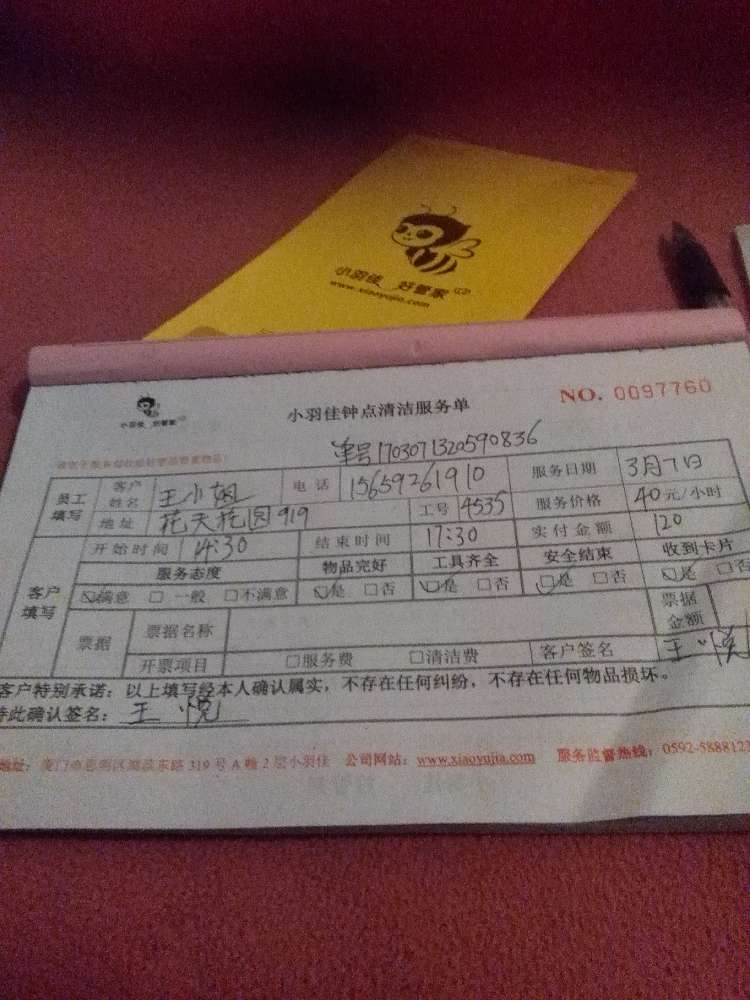 小羽佳 好管家
www.xiaoyujia.com
小羽佳 好管家
小羽佳钟点清洁服务单
NO. 0097760
单号1703071320590836
员工填写
客户姓名 王小姐 电话 15659261910 服务日期 3月7日
地址 花天花园919 工号 4535 服务价格 40元/小时
客户填写
开始时间 14:30 结束时间 17:30 实付金额 120
服务态度 物品完好 工具齐全 安全结束 收到卡片
☑满意 □一般 □不满意 ☑是 □否 ☑是 □否 ☑是 □否 ☑是 □否
票据 票据名称 票据金额
开票项目 □服务费 □清洁费 客户签名 王悦
客户特别承诺：以上填写经本人确认属实，不存在任何纠纷，不存在任何物品损坏。
特此确认签名：王悦
地址：厦门市思明区 东路319号A幢2层小羽佳 公司网站：www.xiaoyujia.com 服务监督热线：0592-5888123